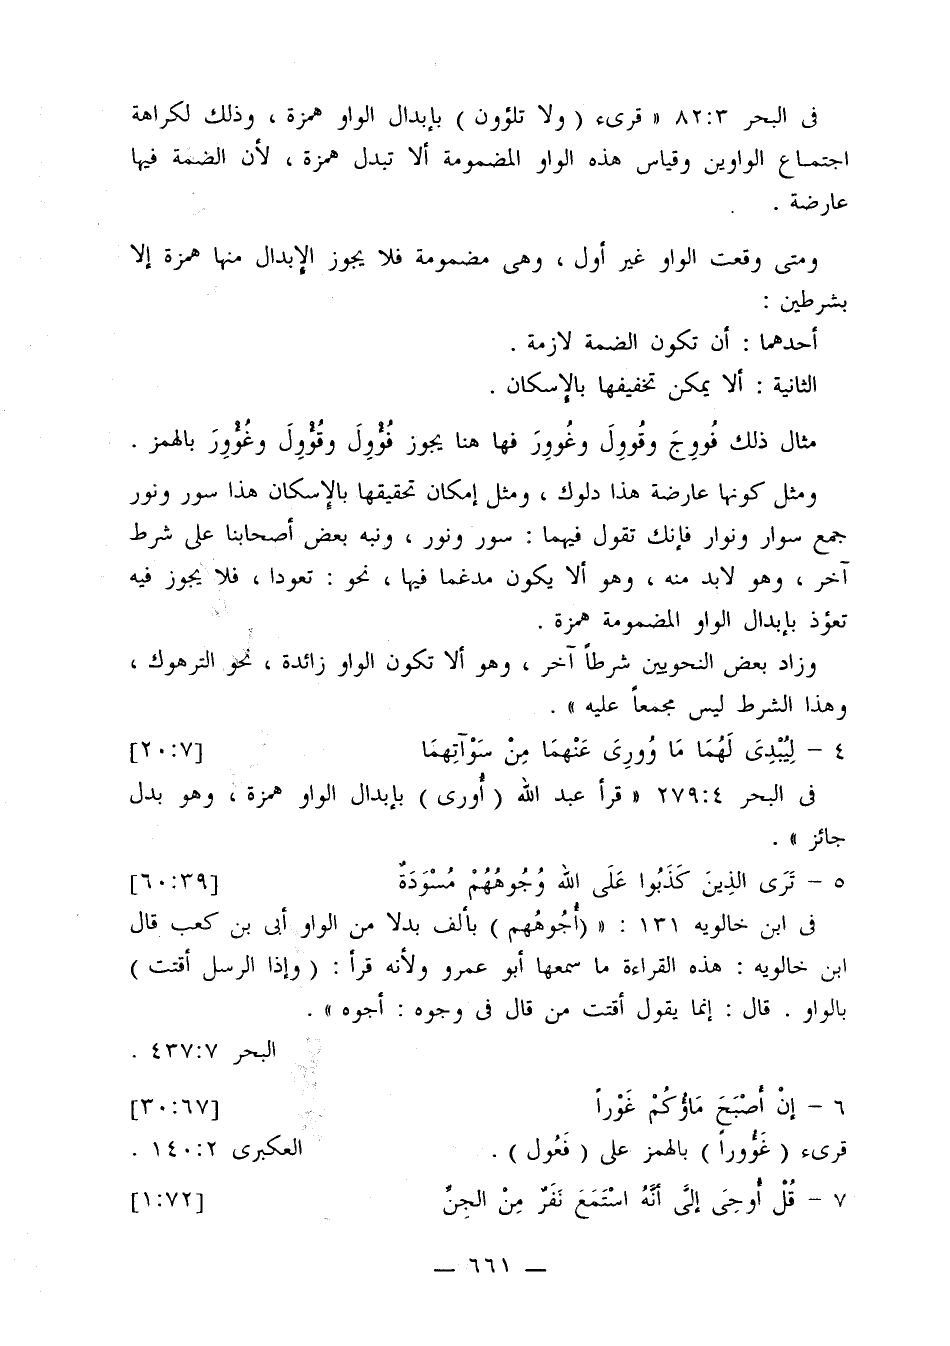 فى البحر ٨٢:٣ « قرىء ( ولا تلؤون ) بإبدال الواو همزة ، وذلك لكراهة
اجتمـاع الواوين وقياس هذه الواو المضمومة ألا تبدل همزة ، لأن الضمة فيها
عارضة .
ومتى وقعت الواو غير أول ، وهى مضمومة فلا يجوز الإبدال منها همزة إلا
بشرطين :
أحدهما : أن تكون الضمة لازمة .
الثانية : ألا يمكن تخفيفها بالإسكان .
مثال ذلك فُووِجَ وقُووِلَ وغُووِرَ فها هنا يجوز فُؤْوِلَ وقُؤْوِلَ وغُؤْوِرَ بالهمز .
ومثل كونها عارضة هذا دلوك ، ومثل إمكان تحقيقها بالإسكان هذا سور ونور
جمع سوار ونوار فإنك تقول فيهما : سور ونور ، ونبه بعض أصحابنا على شرط
آخر ، وهو لابد منه ، وهو ألا يكون مدغما فيها ، نحو : تعودا ، فلا يجوز فيه
تعؤذ بإبدال الواو المضمومة همزة .
وزاد بعض النحويين شرطاً آخر ، وهو ألا تكون الواو زائدة ، نحو الترهوك ،
وهذا الشرط ليس مجمعاً عليه » .
٤ – لِيُبْدِىَ لَهُمَا مَا وُورِىَ عَنْهمَا مِنْ سَوْآتِهمَا [٢٠:٧]
فى البحر ٢٧٩:٤ « قرأ عبد الله ( أُورى ) بإبدال الواو همزة ، وهو بدل
جائز » .
٥ – تَرَى الذِينَ كَذَبُوا عَلَى الله وُجُوهُهُمْ مُسْوَدَةٌ [٦٠:٣٩]
فى ابن خالويه ١٣١ : « (أُجُوهُهم ) بألف بدلا من الواو أبى بن كعب قال
ابن خالويه : هذه القراءة ما سمعها أبو عمرو ولأنه قرأ : ( وإذا الرسل أقتت )
بالواو . قال : إنما يقول أقتت من قال فى وجوه : أجوه » .
البحر ٤٣٧:٧ .
٦ – إنْ أَصْبَحَ مَاؤُكُمْ غَوْراً [٣٠:٦٧]
قرىء ( غَؤُوراً ) بالهمز على ( فَعُول ) . العكبرى ١٤٠:٢ .
٧ – قُلْ أُوحِىَ إلىَّ أنَّهُ اسْتَمَعَ نَفَرٌ مِنْ الجِنِّ [١:٧٢]
— ٦٦١ —